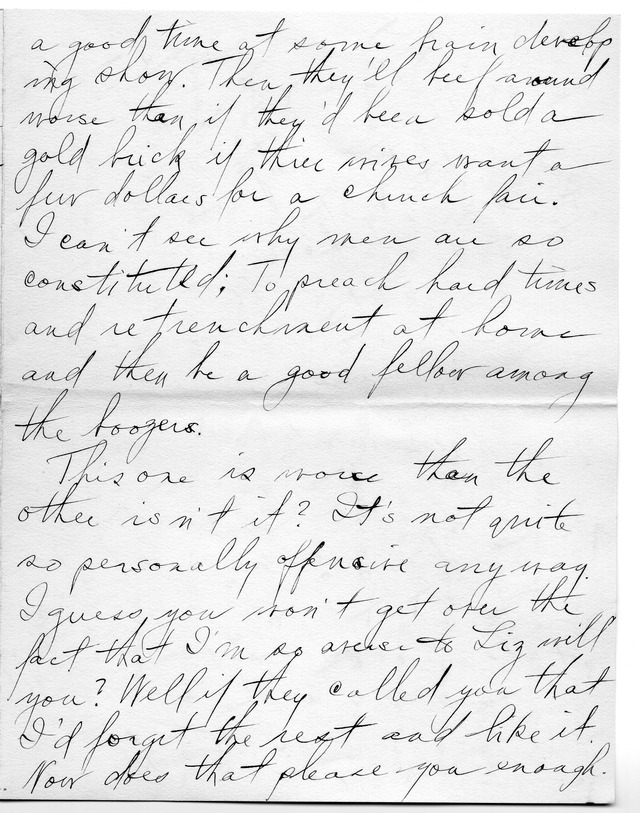 a good time at some brain develop
ing show. Then they'll beef around
worse than if they'd been sold a
gold brick if thier wives want a
few dollars for a church fair.
I can't see why men are so
constituted; To preach hard times
and retrenchment at home
and then be a good fellow among
the boozers.
This one is worse than the
other isn't it? It's not quite
so personally offensive any way.
I guess you won't get over the
fact that I'm so averse to Liz will
you? Well if they called you that
I'd forget the rest and like it.
Now does that please you enough.